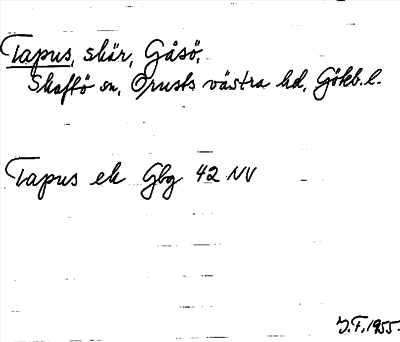 Tapus, skär, Gåsö,
Skaftö sn, Orusts västra hd, Göteb. l.
Tapus ek Gbg 42 NV
J.F. 1955.